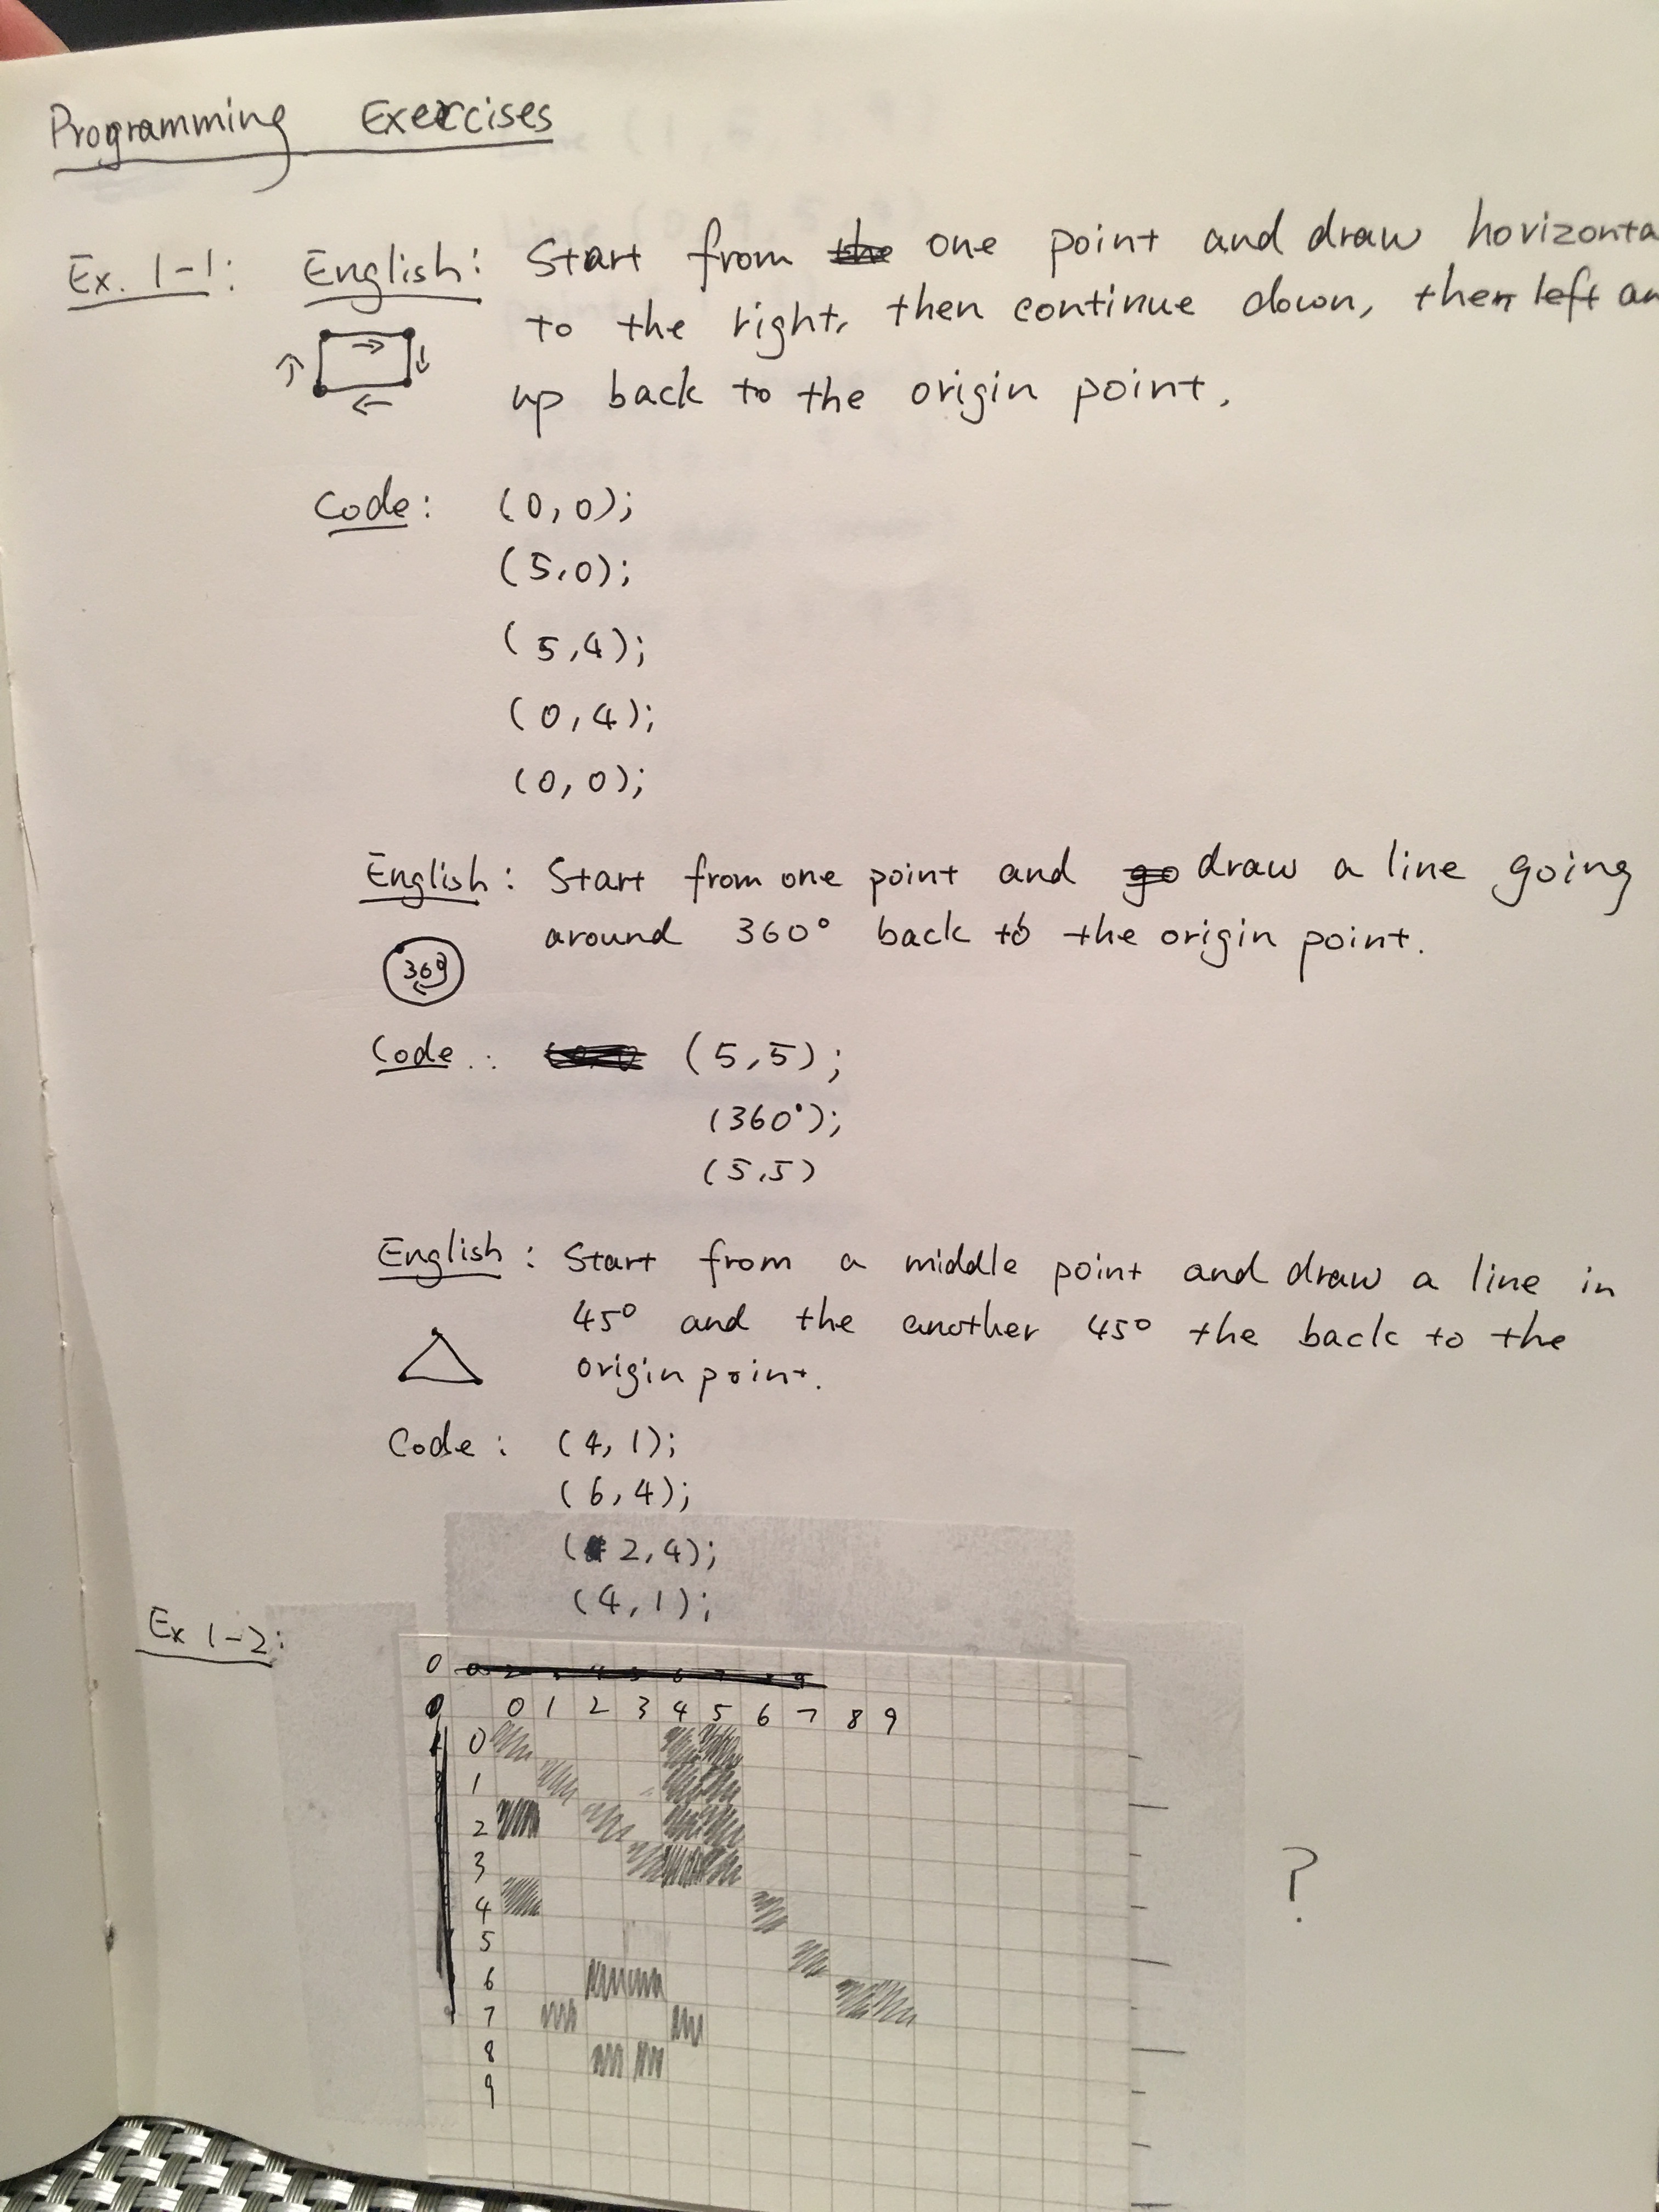 Programming Exercises
Ex. 1-1: English: Start from the one point and draw horizonta
to the right, then continue down, then left an
up back to the origin point.
Code: (0,0);
(5,0);
(5,4);
(0,4);
(0,0);
English: Start from one point and go draw a line going
around 360° back to the origin point.
360
Code: (5,5);
(360°);
(5,5)
English: Start from a middle point and draw a line in
45° and the another 45° the back to the
origin point.
Code: (4,1);
(6,4);
(2,4);
(4,1);
Ex 1-2:
0
0 1 2 3 4 5 6 7 8 9
0
1
2
3
4
5
6
7
8
9
?